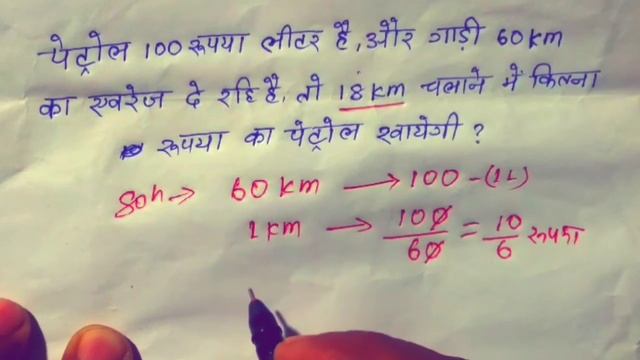 पेट्रोल 100 रूपया लीटर है, और गाड़ी 60 km
का एवरेज दे रहि है, तो 18 km चलाने में कितना
रूपया का पेट्रोल खायेगी ?
Soln → 60 km → 100 - (1L)
1 km → 100/60 = 10/6 रूपया